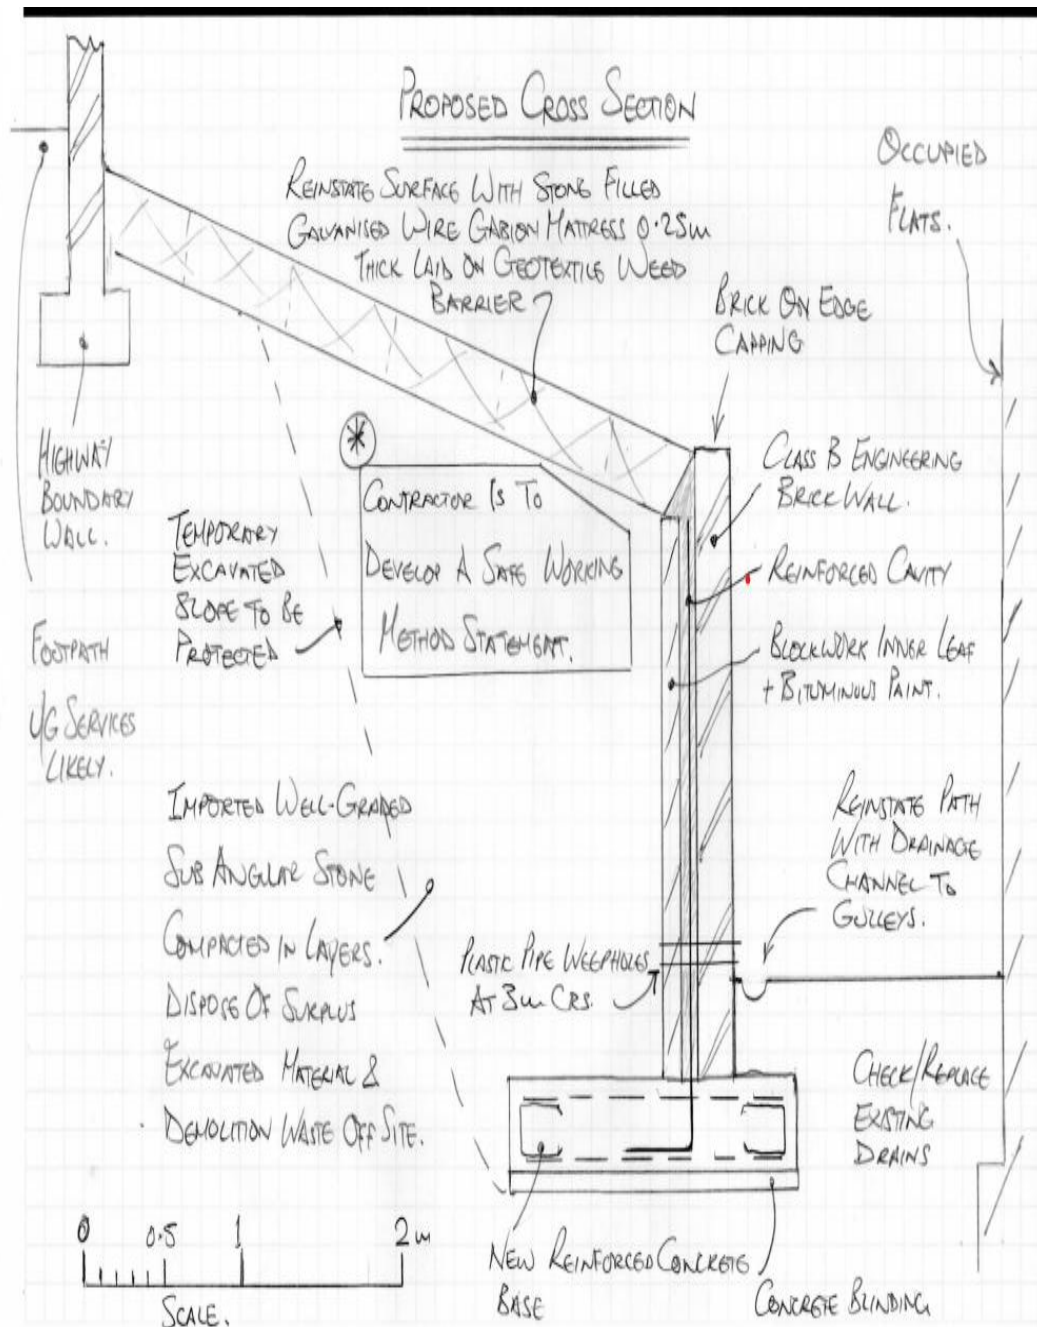 PROPOSED CROSS SECTION
OCCUPIED
FLATS.
REINSTATE SURFACE WITH STONE FILLED
GALVANISED WIRE GABION MATTRESS 0.25m
THICK LAID ON GEOTEXTILE WEED
BARRIER
BRICK ON EDGE
CAPPING
HIGHWAY
BOUNDARY
WALL.
CLASS B ENGINEERING
BRICK WALL.
CONTRACTOR IS TO
DEVELOP A SAFE WORKING
METHOD STATEMENT.
TEMPORARY
EXCAVATED
SLOPE TO BE
PROTECTED
REINFORCED CAVITY
BLOCKWORK INNER LEAF
+ BITUMINOUS PAINT.
FOOTPATH
U/G SERVICES
LIKELY.
IMPORTED WELL-GRADED
SUB ANGULAR STONE
COMPACTED IN LAYERS.
DISPOSE OF SURPLUS
EXCAVATED MATERIAL &
DEMOLITION WASTE OFF SITE.
REINSTATE PATH
WITH DRAINAGE
CHANNEL TO
GULLEYS.
PLASTIC PIPE WEEPHOLES
AT 3m CRS.
CHECK/REPLACE
EXISTING
DRAINS
0 0.5 1 2m
SCALE.
NEW REINFORCED CONCRETE
BASE
CONCRETE BLINDING